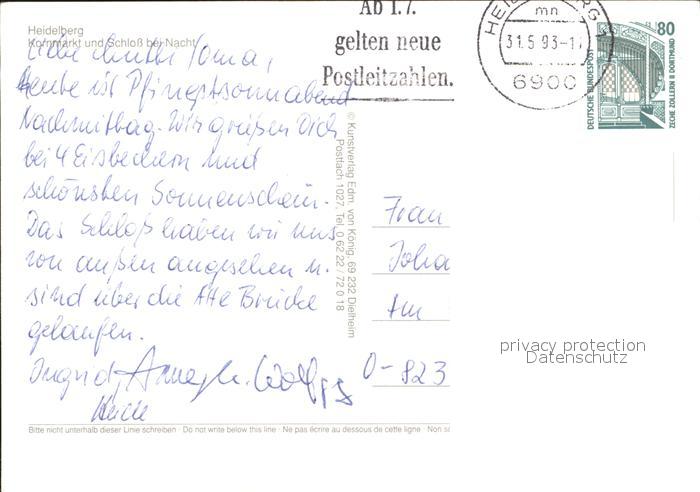 Heidelberg
Kornmarkt und Schloß bei Nacht
Liebe Mutti / Oma,
heute ist Pfingstsonnabend
Nachmittag. Wir grüßen Dich
bei 4 Eisbechern und
schönsten Sonnenschein.
Das Schloß haben wir uns
von außen angesehen u.
sind über die Alte Brücke
gelaufen.
Ingrid, Annegr. Wolfg.
Bitte nicht unterhalb dieser Linie schreiben · Do not write below this line · Ne pas écrire au dessous de cette ligne · Non s
© Kunstverlag Edm. von König, 69 232 Dielheim
Postfach 1027, Tel. 0 62 22 / 72 0 18
Ab 1.7.
gelten neue
Postleitzahlen.
HEIDELBERG
mn
31.5.93-17
6900
80
DEUTSCHE BUNDESPOST
ZECHE ZOLLERN II DORTMUND
Frau
Joha
Am
O-823
privacy protection
Datenschutz